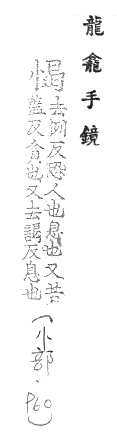 龍龕手鏡
愒去例反恐人也息也又苦
蓋反貪也又去謁反息也
(小部．P60)